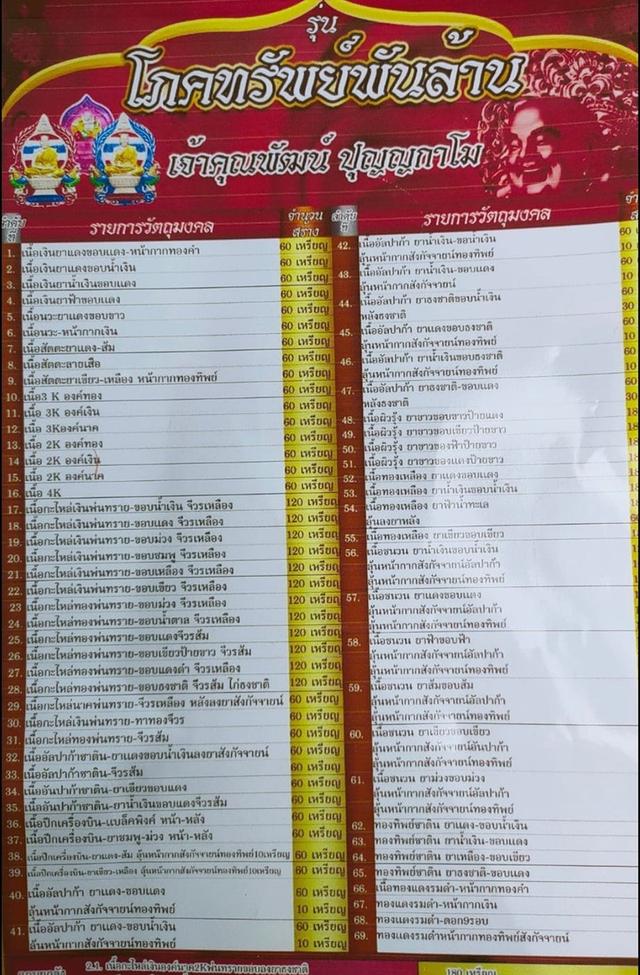 รุ่น
โภคทรัพย์พันล้าน
เจ้าคุณพัฒน์ ปุญญกาโม
ลำดับที่ รายการวัตถุมงคล จำนวนสร้าง
1. เนื้อเงินยาแดงขอบแดง-หน้ากากทองคำ 60 เหรียญ
2. เนื้อเงินยาแดงขอบน้ำเงิน 60 เหรียญ
3. เนื้อเงินยาน้ำเงินขอบแดง 60 เหรียญ
4. เนื้อเงินยาฟ้าขอบแดง 60 เหรียญ
5. เนื้อนวะยาแดงขอบขาว 60 เหรียญ
6. เนื้อนวะ-หน้ากากเงิน 60 เหรียญ
7. เนื้อสัตตะยาแดง-ส้ม 60 เหรียญ
8. เนื้อสัตตะลายเสือ 60 เหรียญ
9. เนื้อสัตตะยาเขียว-เหลือง หน้ากากทองทิพย์ 60 เหรียญ
10. เนื้อ3 K องค์ทอง 60 เหรียญ
11. เนื้อ 3K องค์เงิน 60 เหรียญ
12. เนื้อ 3Kองค์นาค 60 เหรียญ
13. เนื้อ 2K องค์ทอง 60 เหรียญ
14 เนื้อ 2K องค์เงิน 60 เหรียญ
15. เนื้อ 2K องค์นาค 60 เหรียญ
16. เนื้อ 4K 60 เหรียญ
17. เนื้อกะไหล่เงินพ่นทราย-ขอบน้ำเงิน จีวรเหลือง 120 เหรียญ
18. เนื้อกะไหล่เงินพ่นทราย-ขอบแดง จีวรเหลือง 120 เหรียญ
19. เนื้อกะไหล่เงินพ่นทราย-ขอบม่วง จีวรเหลือง 120 เหรียญ
20. เนื้อกะไหล่เงินพ่นทราย-ขอบชมพู จีวรเหลือง 120 เหรียญ
21. เนื้อกะไหล่เงินพ่นทราย-ขอบเหลือง จีวรเหลือง 120 เหรียญ
22. เนื้อกะไหล่เงินพ่นทราย-ขอบเขียว จีวรเหลือง 120 เหรียญ
23 เนื้อกะไหล่ทองพ่นทราย-ขอบม่วง จีวรเหลือง 120 เหรียญ
24. เนื้อกะไหล่ทองพ่นทราย-ขอบน้ำตาล จีวรเหลือง 120 เหรียญ
25. เนื้อกะไหล่ทองพ่นทราย-ขอบแดงจีวรส้ม 120 เหรียญ
26. เนื้อกะไหล่ทองพ่นทราย-ขอบเขียวป้ายขาว จีวรส้ม 120 เหรียญ
27. เนื้อกะไหล่ทองพ่นทราย-ขอบแดงดำ จีวรเหลือง 120 เหรียญ
28. เนื้อกะไหล่ทองพ่นทราย-ขอบธงชาติ จีวรส้ม ไก่ธงชาติ 120 เหรียญ
29. เนื้อกะไหล่นาคพ่นทราย-จีวรเหลือง หลังลงยาสังกัจจายน์ 60 เหรียญ
30. เนื้อกะไหล่เงินพ่นทราย-ทาทองจีวร 60 เหรียญ
31. เนื้อกะไหล่ทองพ่นทราย-จีวรส้ม 60 เหรียญ
32. เนื้ออัลปาก้าซาติน-ยาแดงขอบน้ำเงินลงยาสังกัจจายน์ 60 เหรียญ
33. เนื้ออัลปาก้าซาติน-จีวรส้ม 60 เหรียญ
34. เนื้ออันปาก้าซาติน-ยาเขียวขอบแดง 60 เหรียญ
35. เนื้ออันปาก้าซาติน-ยาน้ำเงินขอบแดงจีวรส้ม 60 เหรียญ
36. เนื้อปีกเครื่องบิน-แบล็คพิงค์ หน้า-หลัง 60 เหรียญ
37. เนื้อปีกเครื่องบิน-ยาชมพู-ม่วง หน้า-หลัง 60 เหรียญ
38. เนื้อปีกเครื่องบิน-ยาแดง-ส้ม ลุ้นหน้ากากสังกัจจายน์ทองทิพย์10เหรียญ 60 เหรียญ
39. เนื้อปีกเครื่องบิน-ยาเขียว-เหลือง ลุ้นหน้ากากสังกัจจายน์ทองทิพย์10เหรียญ 60 เหรียญ
40. เนื้ออัลปาก้า ยาแดง-ขอบแดง 60 เหรียญ
ลุ้นหน้ากากสังกัจจายน์ทองทิพย์ 10 เหรียญ
41. เนื้ออัลปาก้า ยาแดง-ขอบน้ำเงิน 60 เหรียญ
ลุ้นหน้ากากสังกัจจายน์ทองทิพย์ 10 เหรียญ
ลำดับที่ รายการวัตถุมงคล
42. เนื้ออัลปาก้า ยาน้ำเงิน-ขอน้ำเงิน 60
ลุ้นหน้ากากสังกัจจายน์ทองทิพย์ 10
43. เนื้ออัลปาก้า ยาน้ำเงิน-ขอบแดง 60
ลุ้นหน้ากากสังกัจจายน์ 10
44. เนื้ออัลปาก้า ยาธงชาติขอบน้ำเงิน 60
หลังธงชาติ 30
45. เนื้ออัลปาก้า ยาแดงขอบธงชาติ 60
ลุ้นหน้ากากสังกัจจายน์ทองทิพย์ 10
46. เนื้ออัลปาก้า ยาน้ำเงินขอบธงชาติ 60
ลุ้นหน้ากากสังกัจจายน์ทองทิพย์ 10
47. เนื้ออัลปาก้า ยาธงชาติ-ขอบแดง 60
หลังธงชาติ 30
48. เนื้อผิวรุ้ง ยาขาวขอบขาวป้ายแดง
49. เนื้อผิวรุ้ง ยาขาวขอบเขียวป้ายขาว
50. เนื้อผิวรุ้ง ยาขาวของฟ้าป้ายขาว
51. เนื้อผิวรุ้ง ยาขาวของแดงป้ายขาว
52. เนื้อทองเหลือง ยาแดงขอบแดง
53. เนื้อทองเหลือง ยาน้ำเงินขอบน้ำเงิน
54. เนื้อทองเหลือง ยาฟ้าน้ำทะเล
ลุ้นลงยาหลัง
55. เนื้อทองเหลือง ยาเขียวขอบเขียว
56. เนื้อชนวน ยาน้ำเงินขอบน้ำเงิน
ลุ้นหน้ากากสังกัจจายน์อัลปาก้า
ลุ้นหน้ากากสังกัจจายน์ทองทิพย์
57. เนื้อชนวน ยาแดงขอบแดง
ลุ้นหน้ากากสังกัจจายน์อัลปาก้า
ลุ้นหน้ากากสังกัจจายน์ทองทิพย์
58. เนื้อชนวน ยาฟ้าขอบฟ้า
ลุ้นหน้ากากสังกัจจายน์อัลปาก้า
ลุ้นหน้ากากสังกัจจายน์ทองทิพย์
59. เนื้อชนวน ยาส้มขอบส้ม
ลุ้นหน้ากากสังกัจจายน์อัลปาก้า
ลุ้นหน้ากากสังกัจจายน์ทองทิพย์
60. เนื้อชนวน ยาเขียวขอบเขียว
ลุ้นหน้ากากสังกัจจายน์อันปาก้า
ลุ้นหน้ากากสังกัจจายน์ทองทิพย์
61. เนื้อชนวน ยาม่วงขอบม่วง
ลุ้นหน้ากากสังกัจจายน์อัลปาก้า
ลุ้นหน้ากากสังกัจจายน์ทองทิพย์
62. ทองทิพย์ซาติน ยาแดง-ขอบน้ำเงิน
63. ทองทิพย์ซาติน ยาน้ำเงิน-ขอบแดง
64. ทองทิพย์ซาติน ยาเหลือง-ขอบเขียว
65. ทองทิพย์ซาติน ยาธงชาติ-ขอบแดง
66. เนื้อทองแดงรมดำ-หน้ากากทองคำ
67. ทองแดงรมดำ-หน้ากากเงิน
68. ทองแดงรมดำ-ตอก9รอบ
69. ทองแดงรมดำหน้ากากทองทิพย์สังกัจจายน์
2.1. เนื้อกะไหล่เงินองค์นาค2Kพ่นทรายขอบลงยาธงชาติ 180 เหรียญ